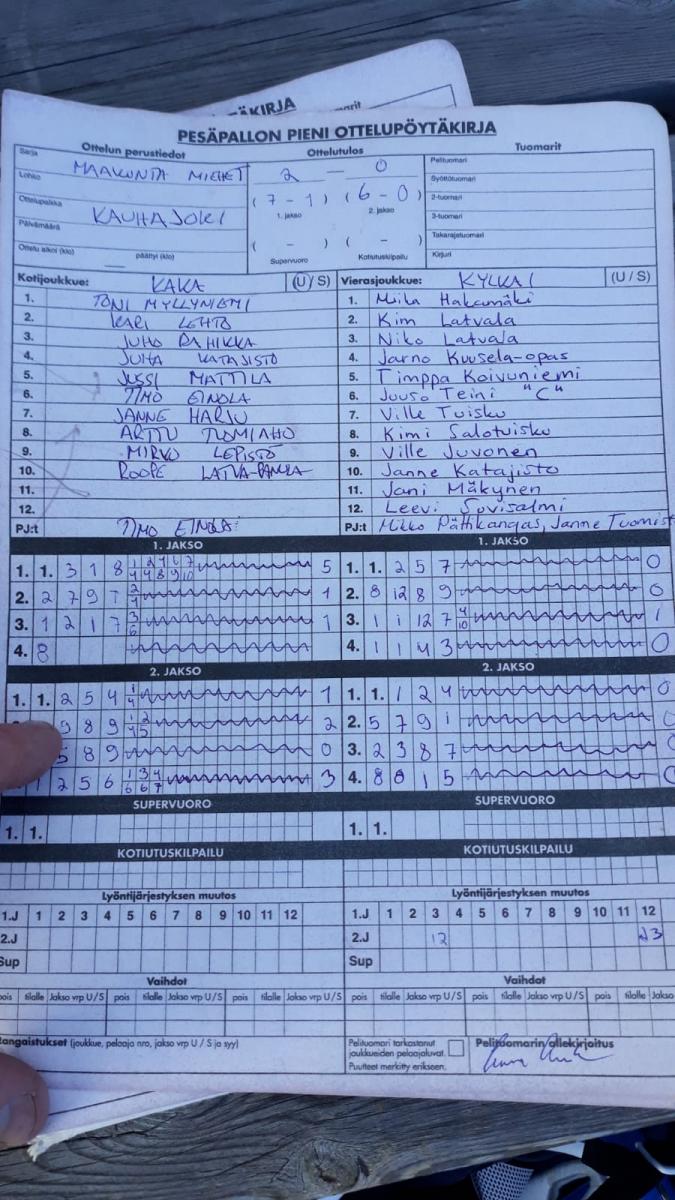 TÄKIRJA
PESÄPALLON PIENI OTTELUPÖYTÄKIRJA
Ottelun perustiedot Ottelutulos Tuomarit
Sarja MAAKUNTA MIEHET 2 – 0 Pelituomari
Lohko Syöttötuomari
Ottelupaikka KAUHAJOKI (7 - 1) (6 - 0) 2-tuomari
1. jakso 2. jakso 3-tuomari
Päivämäärä ( - ) ( - ) Takarajatuomari
Ottelu alkoi (klo) päättyi (klo) Supervuoro Kotiutuskilpailu Kirjuri
Kotijoukkue: KAKA (U / S) Vierasjoukkue: KYLKAI (U / S)
1. TONI MYLLYNIEMI 1. Mika Hakamäki
2. KARI LEHTO 2. Kim Latvala
3. JUHO PAHIKKA 3. Niko Latvala
4. JUHA KATAJISTO 4. Jarno Kuusela-opas
5. JUSSI MATTILA 5. Timppa Koivuniemi
6. TIMO EINOLA 6. Juuso Teini "C"
7. JANNE HARJU 7. Ville Tuisku
8. ARTTU TUOMIAHO 8. Kimi Salotuisku
9. MIRKO LEPISTÖ 9. Ville Juvonen
10. ROOPE LATVA-PANULA 10. Janne Katajisto
11. 11. Jani Mäkynen
12. 12. Leevi Sovisalmi
PJ:t TIMO EINOLA PJ:t Mikko Pättikangas, Janne Tuomist
1. JAKSO 1. JAKSO
1. 1. 3 1 8 1/4 2/4 4/8 6/9 7/10 5 1. 1. 2 5 7 0
2. 2 7 9 T 2/4 1 2. 8 12 8 9 0
3. 1 2 1 7 3/6 1 3. 1 1 12 7 4/10 1
4. 8 4. 1 1 4 3 0
2. JAKSO 2. JAKSO
1. 1. 2 5 4 1/4 1 1. 1. 1 2 4 0
9 8 9 1/4 2/5 2 2. 5 7 9 1
5 8 9 0 3. 2 3 8 7
1 2 5 6 1/6 3/6 4/7 3 4. 8 8 1 5
SUPERVUORO SUPERVUORO
1. 1. 1. 1.
KOTIUTUSKILPAILU KOTIUTUSKILPAILU
Lyöntijärjestyksen muutos Lyöntijärjestyksen muutos
1.J 1 2 3 4 5 6 7 8 9 10 11 12 1.J 1 2 3 4 5 6 7 8 9 10 11 12
2.J 2.J 12 3
Sup Sup
Vaihdot Vaihdot
pois tilalle Jakso vrp U / S pois tilalle Jakso vrp U / S pois tilalle Jakso vrp U / S pois tilalle Jakso vrp U / S pois tilalle Jakso vrp U / S pois tilalle Jakso
Rangaistukset (joukkue, pelaaja nro, jakso vrp U / S ja syy) Pelituomari tarkastanut joukkueiden pelaajaluvat. Pelituomarin allekirjoitus
Puutteet merkitty erikseen.